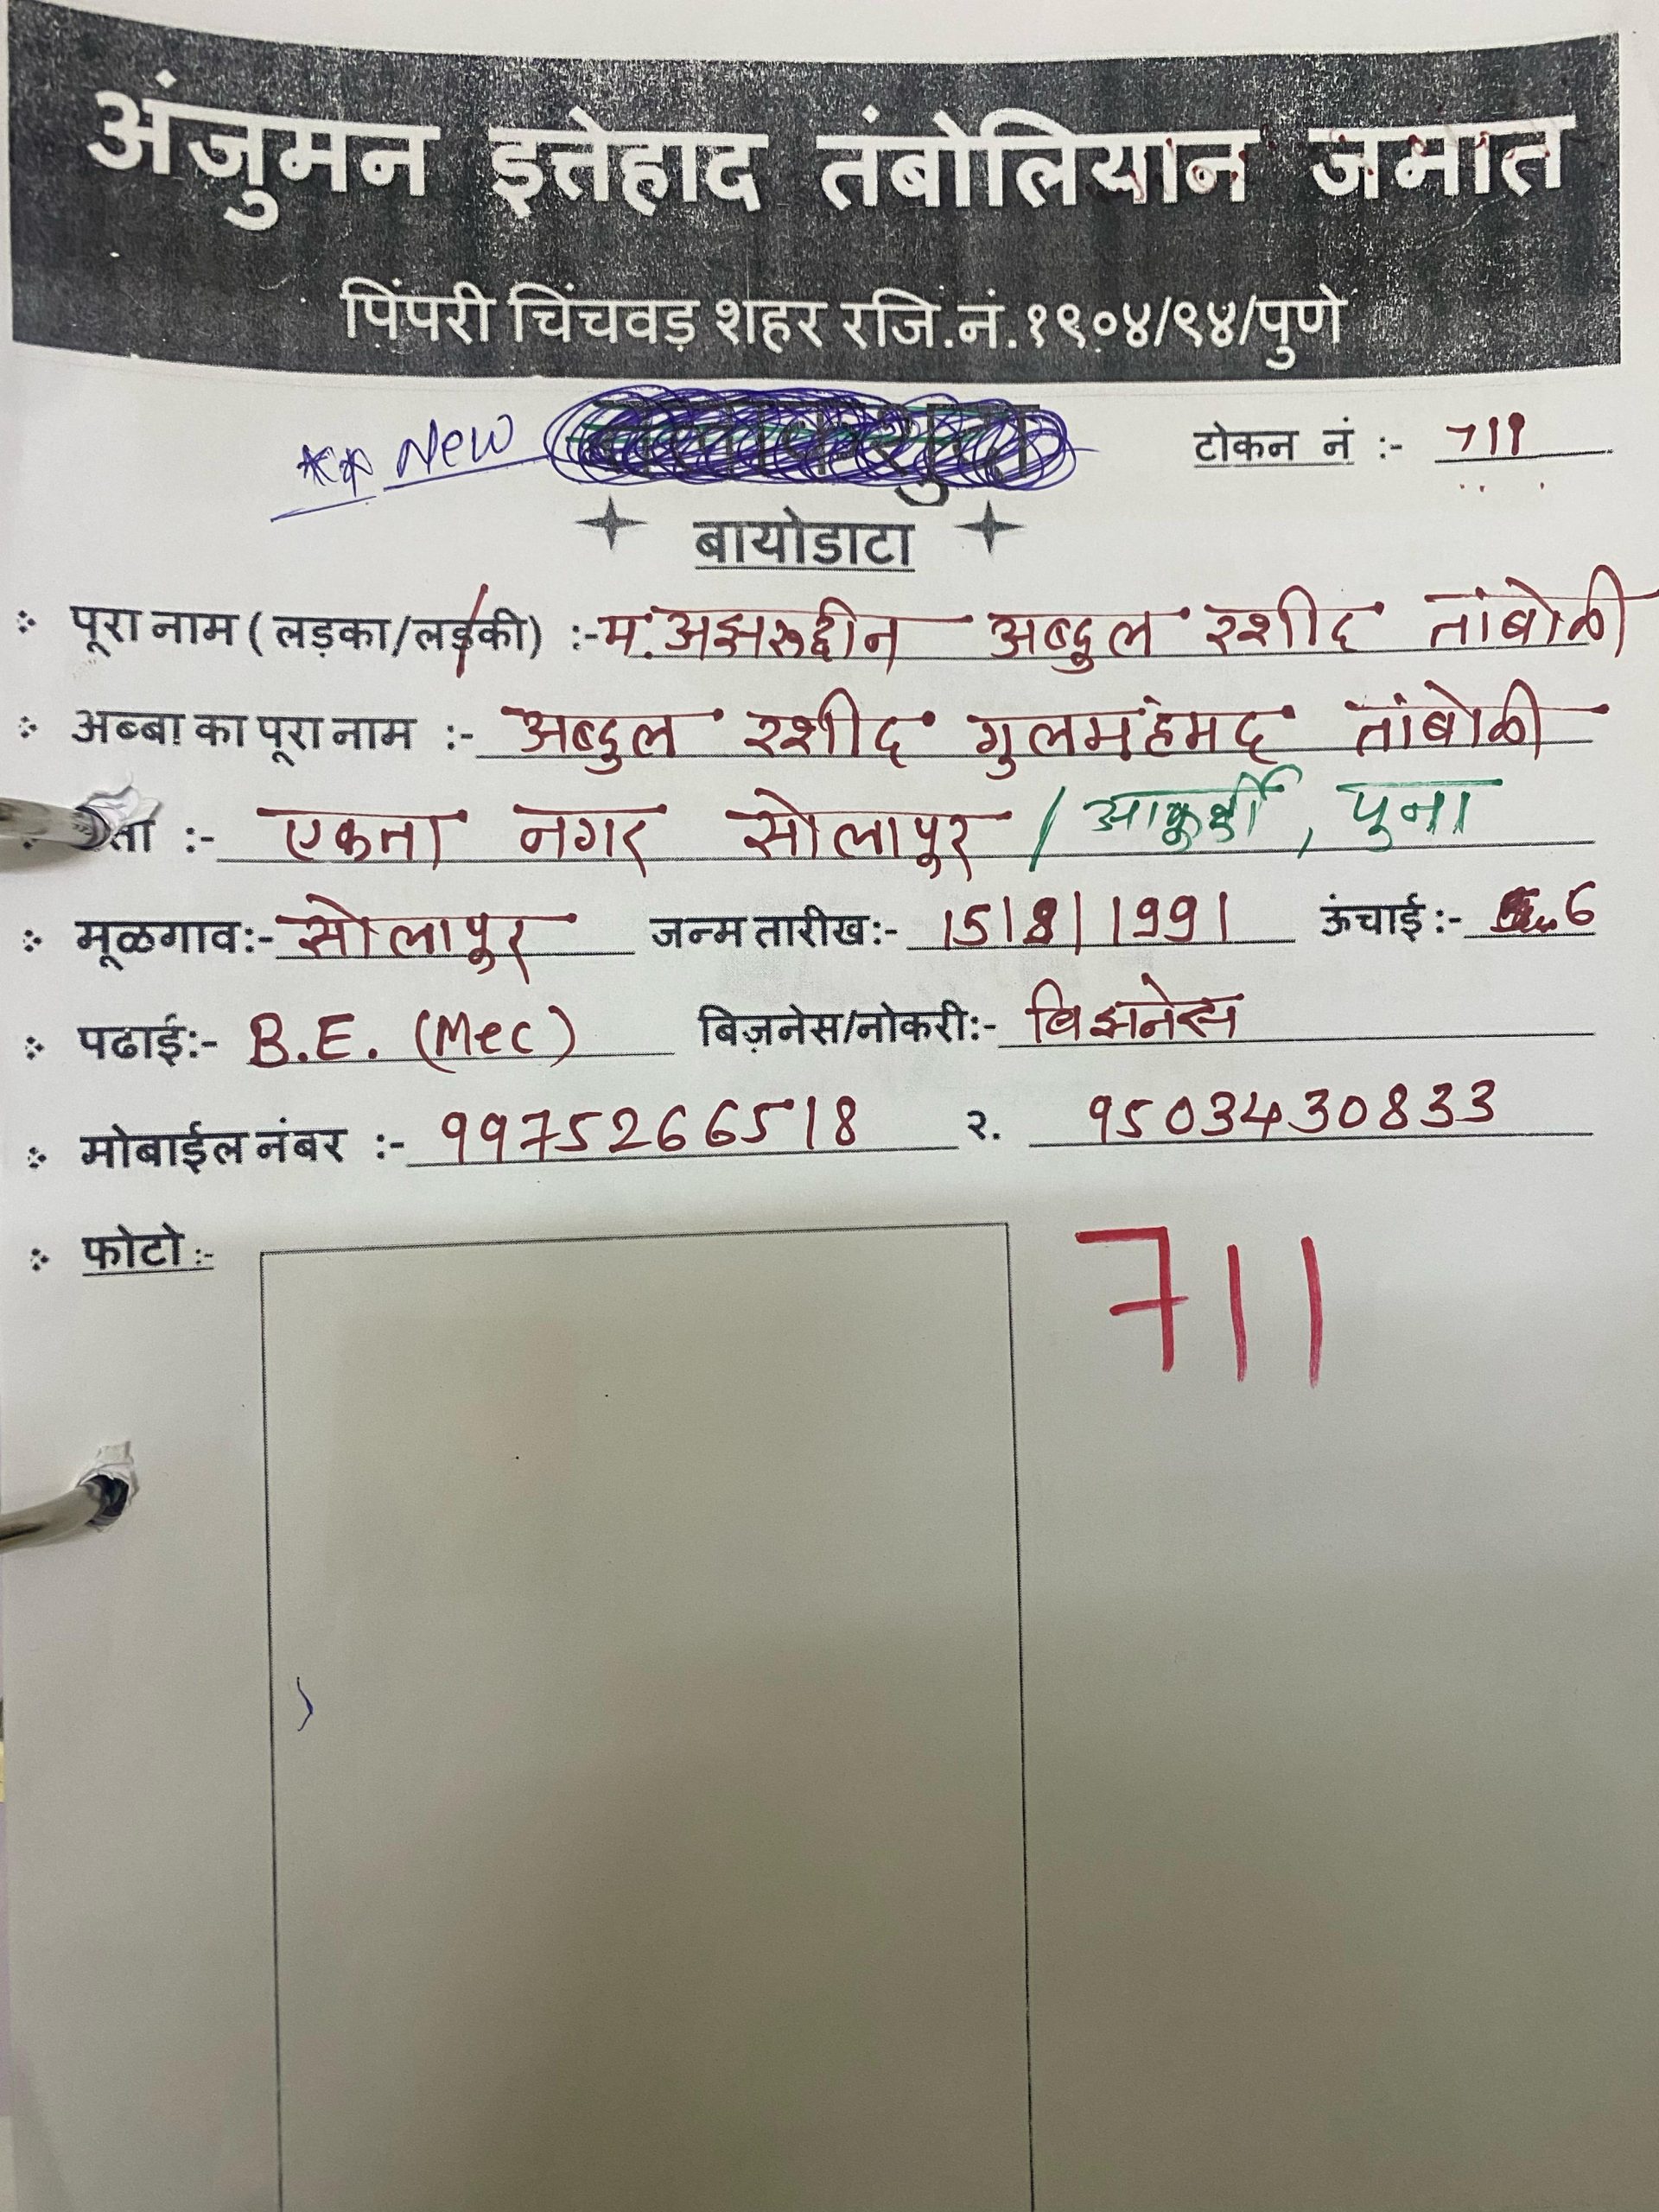 अंजुमन इत्तेहाद तंबोलियान जमात
पिंपरी चिंचवड़ शहर रजि.नं.१९०४/९४/पुणे
** New
टोकन नं :- 711
बायोडाटा
पूरा नाम ( लड़का/लड़की) :- म. अझरुद्दीन अब्दुल रशीद तांबोळी
अब्बा का पूरा नाम :- अब्दुल रशीद गुलमहंमद तांबोळी
ता :- एकता नगर सोलापूर / आकुर्डी, पुना
मूळगाव:- सोलापूर जन्म तारीख:- 15|8|1991 ऊंचाई :- 6
पढाई:- B.E. (Mec) बिज़नेस/नोकरी:- बिझनेस
मोबाईल नंबर :- 9975266518 २. 9503430833
फोटो :-
711